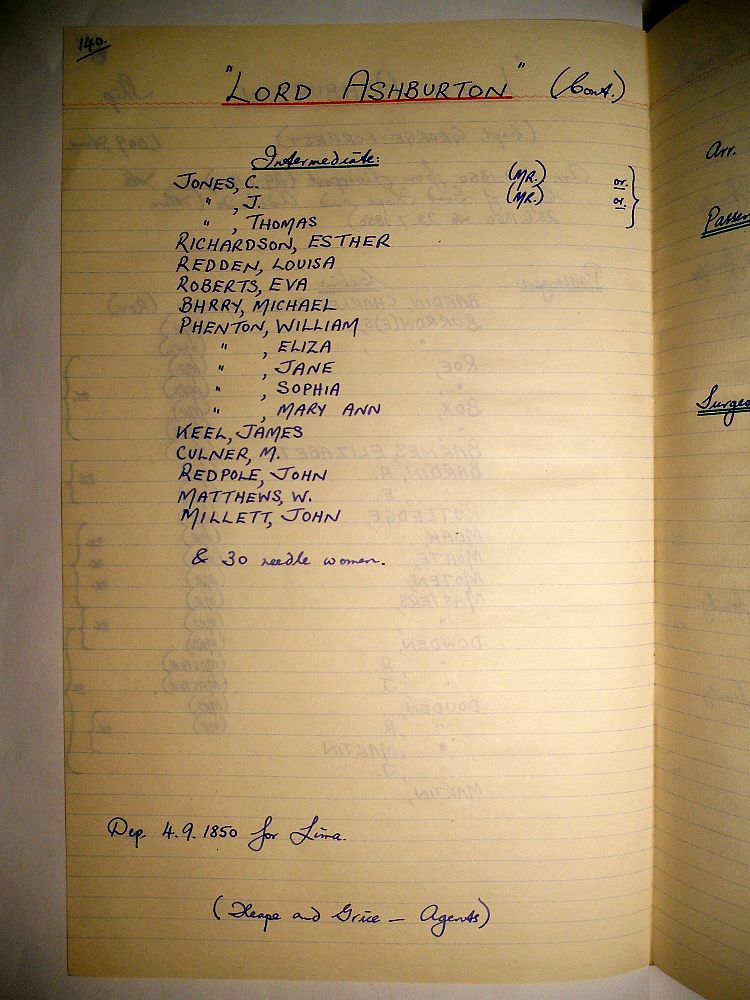 140.
"LORD ASHBURTON" (Cont.)
Intermediate:
JONES, C. (MR.) or.
" , J. (MR.) or.
" , THOMAS
RICHARDSON, ESTHER
REDDEN, LOUISA
ROBERTS, EVA
BHRRY, MICHAEL
PHENTON, WILLIAM
" , ELIZA
" , JANE
" , SOPHIA
" , MARY ANN
KEEL, JAMES
CULNER, M.
REDPOLE, JOHN
MATTHEWS, W.
MILLETT, JOHN
& 30 needle women.
Dep. 4.9.1850 for Lima.
(Heape and Grice – Agents)
Arr.